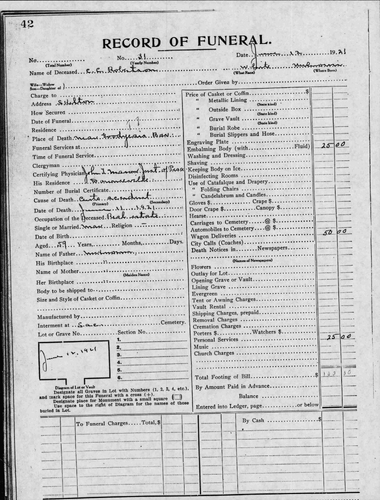 42
RECORD OF FUNERAL.
No. No. 31 Date, June 12 1921
(Total Number) (Yearly Number)
Name of Deceased C. C. Robertson White Unknown
(What Race) (Where Born)
Order Given by
Charge to
Address Shelton
How Secured
Date of Funeral
Residence
Place of Death near
Funeral Services at
Time of Funeral Service
Clergyman
Certifying Physician John T. Mason Just. of Peace
His Residence
Number of Burial Certificate
Cause of Death Auto accident
(Primary) (Secondary)
Date of Death June 11, 1921
Occupation of the Deceased Real estate
Single or Married Religion
Date of Birth
Aged 59 Years, Months, Days.
Name of Father Unknown
His Birthplace
Name of Mother
(Maiden Name)
Her Birthplace
Body to be shipped to
Size and Style of Casket or Coffin
Manufactured by
Interment at Cemetery.
Lot or Grave No. Section No.
June 12, 1921
1.
2.
3.
4.
5.
6.
Diagram of Lot or Vault
Designate all Graves in Lot with Numbers (1, 2, 3, 4, etc.),
and mark space for this Funeral with a cross (+).
Designate place for Monument with a small square
Use space to the right of Diagram for the names of those
buried in Lot.
Price of Casket or Coffin
" Metallic Lining
(State kind)
" Outside Box
(State kind)
" Grave Vault
(State kind)
" Burial Robe
(State kind)
" Burial Slippers and Hose
Engraving Plate
Embalming Body (with Fluid) 25 00
Washing and Dressing
Shaving
Keeping Body on Ice
Disinfecting Rooms
Use of Catafalque and Drapery
" Folding Chairs
" Candelabrum and Candles
Gloves $ Crape $
Door Crape $ Canopy $
Hearse
Carriages to Cemetery @ $
Automobiles to Cemetery @ $
Wagon Deliveries 50 00
City Calls (Coaches)
Death Notices in Newspapers
(Names of Newspapers)
Flowers
Outlay for Lot
Opening Grave or Vault
Lining Grave
Evergreen
Tent or Awning Charges
Vault Rental
Shipping Charges, prepaid
Removal Charges
Cremation Charges
Porters $ Watchers $
Personal Services 25 00
Music
Church Charges
Total Footing of Bill
By Amount Paid in Advance
Balance
Entered into Ledger, page or below.
To Funeral Charges
By Cash